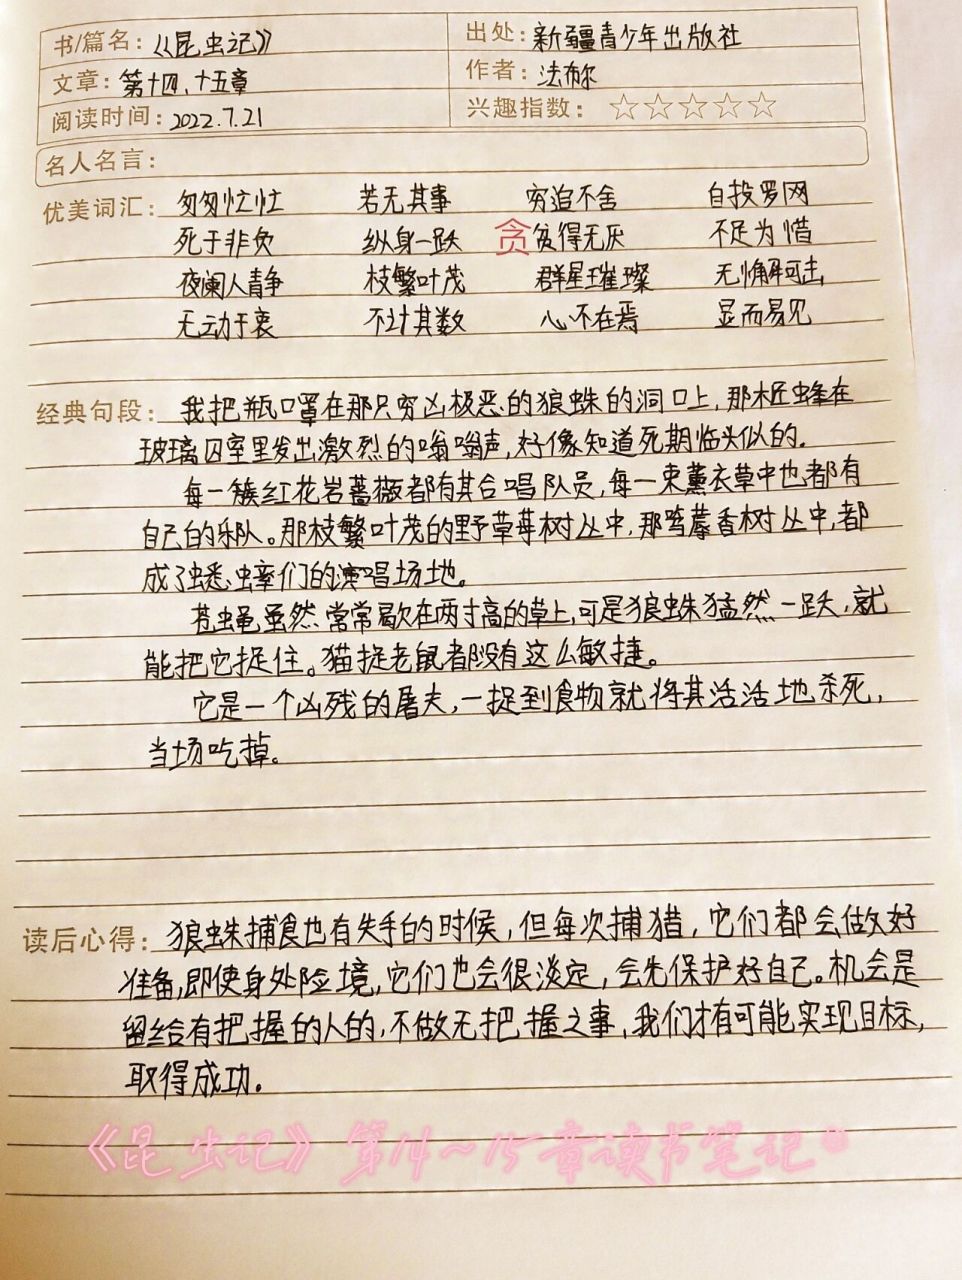 书/篇名：《昆虫记》 出处：新疆青少年出版社
文章：第十四、十五章 作者：法布尔
阅读时间：2022.7.21 兴趣指数：☆☆☆☆☆
名人名言：
优美词汇：匆匆忙忙 若无其事 穷追不舍 自投罗网
死于非负 纵身一跃 贪 贫得无厌 不足为惜
夜阑人青争 枝繁叶茂 群星璀璨 无懈可击
无动于衷 不计其数 心不在焉 显而易见
经典句段：我把瓶口罩在那只穷凶极恶的狼蛛的洞口上，那木匠蜂在
玻璃囚室里发出激烈的嗡嗡声，好像知道死期临头似的。
每一簇红花岩蔷薇都有其合唱队员，每一束薰衣草中也都有
自己的乐队。那枝繁叶茂的野草莓树丛中，那笃馨香树丛中，都
成了蟋蟀们的演唱场地。
苍蝇虽然常常歇在两寸高的草上，可是狼蛛猛然一跃，就
能把它捉住。猫捉老鼠都没有这么敏捷。
它是一个凶残的屠夫，一捉到食物就将其活活地杀死，
当场吃掉。
读后心得：狼蛛捕食也有失手的时候，但每次捕猎，它们都会做好
准备，即使身处险境，它们也会很淡定，会先保护好自己。机会是
留给有把握的人的，不做无把握之事，我们才有可能实现目标，
取得成功。
《昆虫记》第14~15章读书笔记